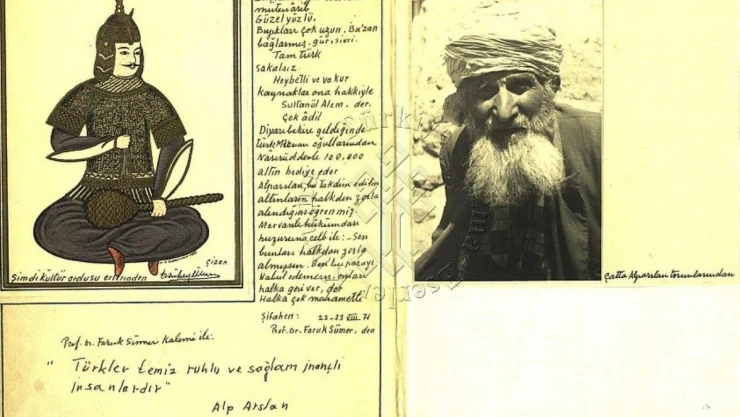 Güzel yüzlü.
Bıyıkları çok uzun. Ba'zan
bağlarmış. gür, sivri.
Tam türk
sakalsız.
Heybetli ve vakur
Kaynaklar ona hakkiyle
Sultanül Alem, der.
Çok âdil
Diyarıbekire geldiğinde
türk Mervan oğullarından
Nâsırüddevle 100,000
altın hediye eder
Alparslan, bu takdim edilen
altınların halkdan zorla
alındığını öğrenmiş
Mervanlı hükümdarı
huzuruna celb ile: - Sen
bunları halkdan zorla
almışsın. Ben bu parayı
Kabul edemem, onları
halka geri ver, der
Halka çok merhametli
Şifahen: 22-23 VIII 71
Prof. Dr. Faruk Sümer, den
çizen
Şimdi kültür ordusu erlerinden
Çatta Alparslan torunlarından
Prof. Dr. Faruk Sümer Kalemi ile:
"Türkler temiz ruhlu ve sağlam inançlı
insanlardır"
Alp Arslan